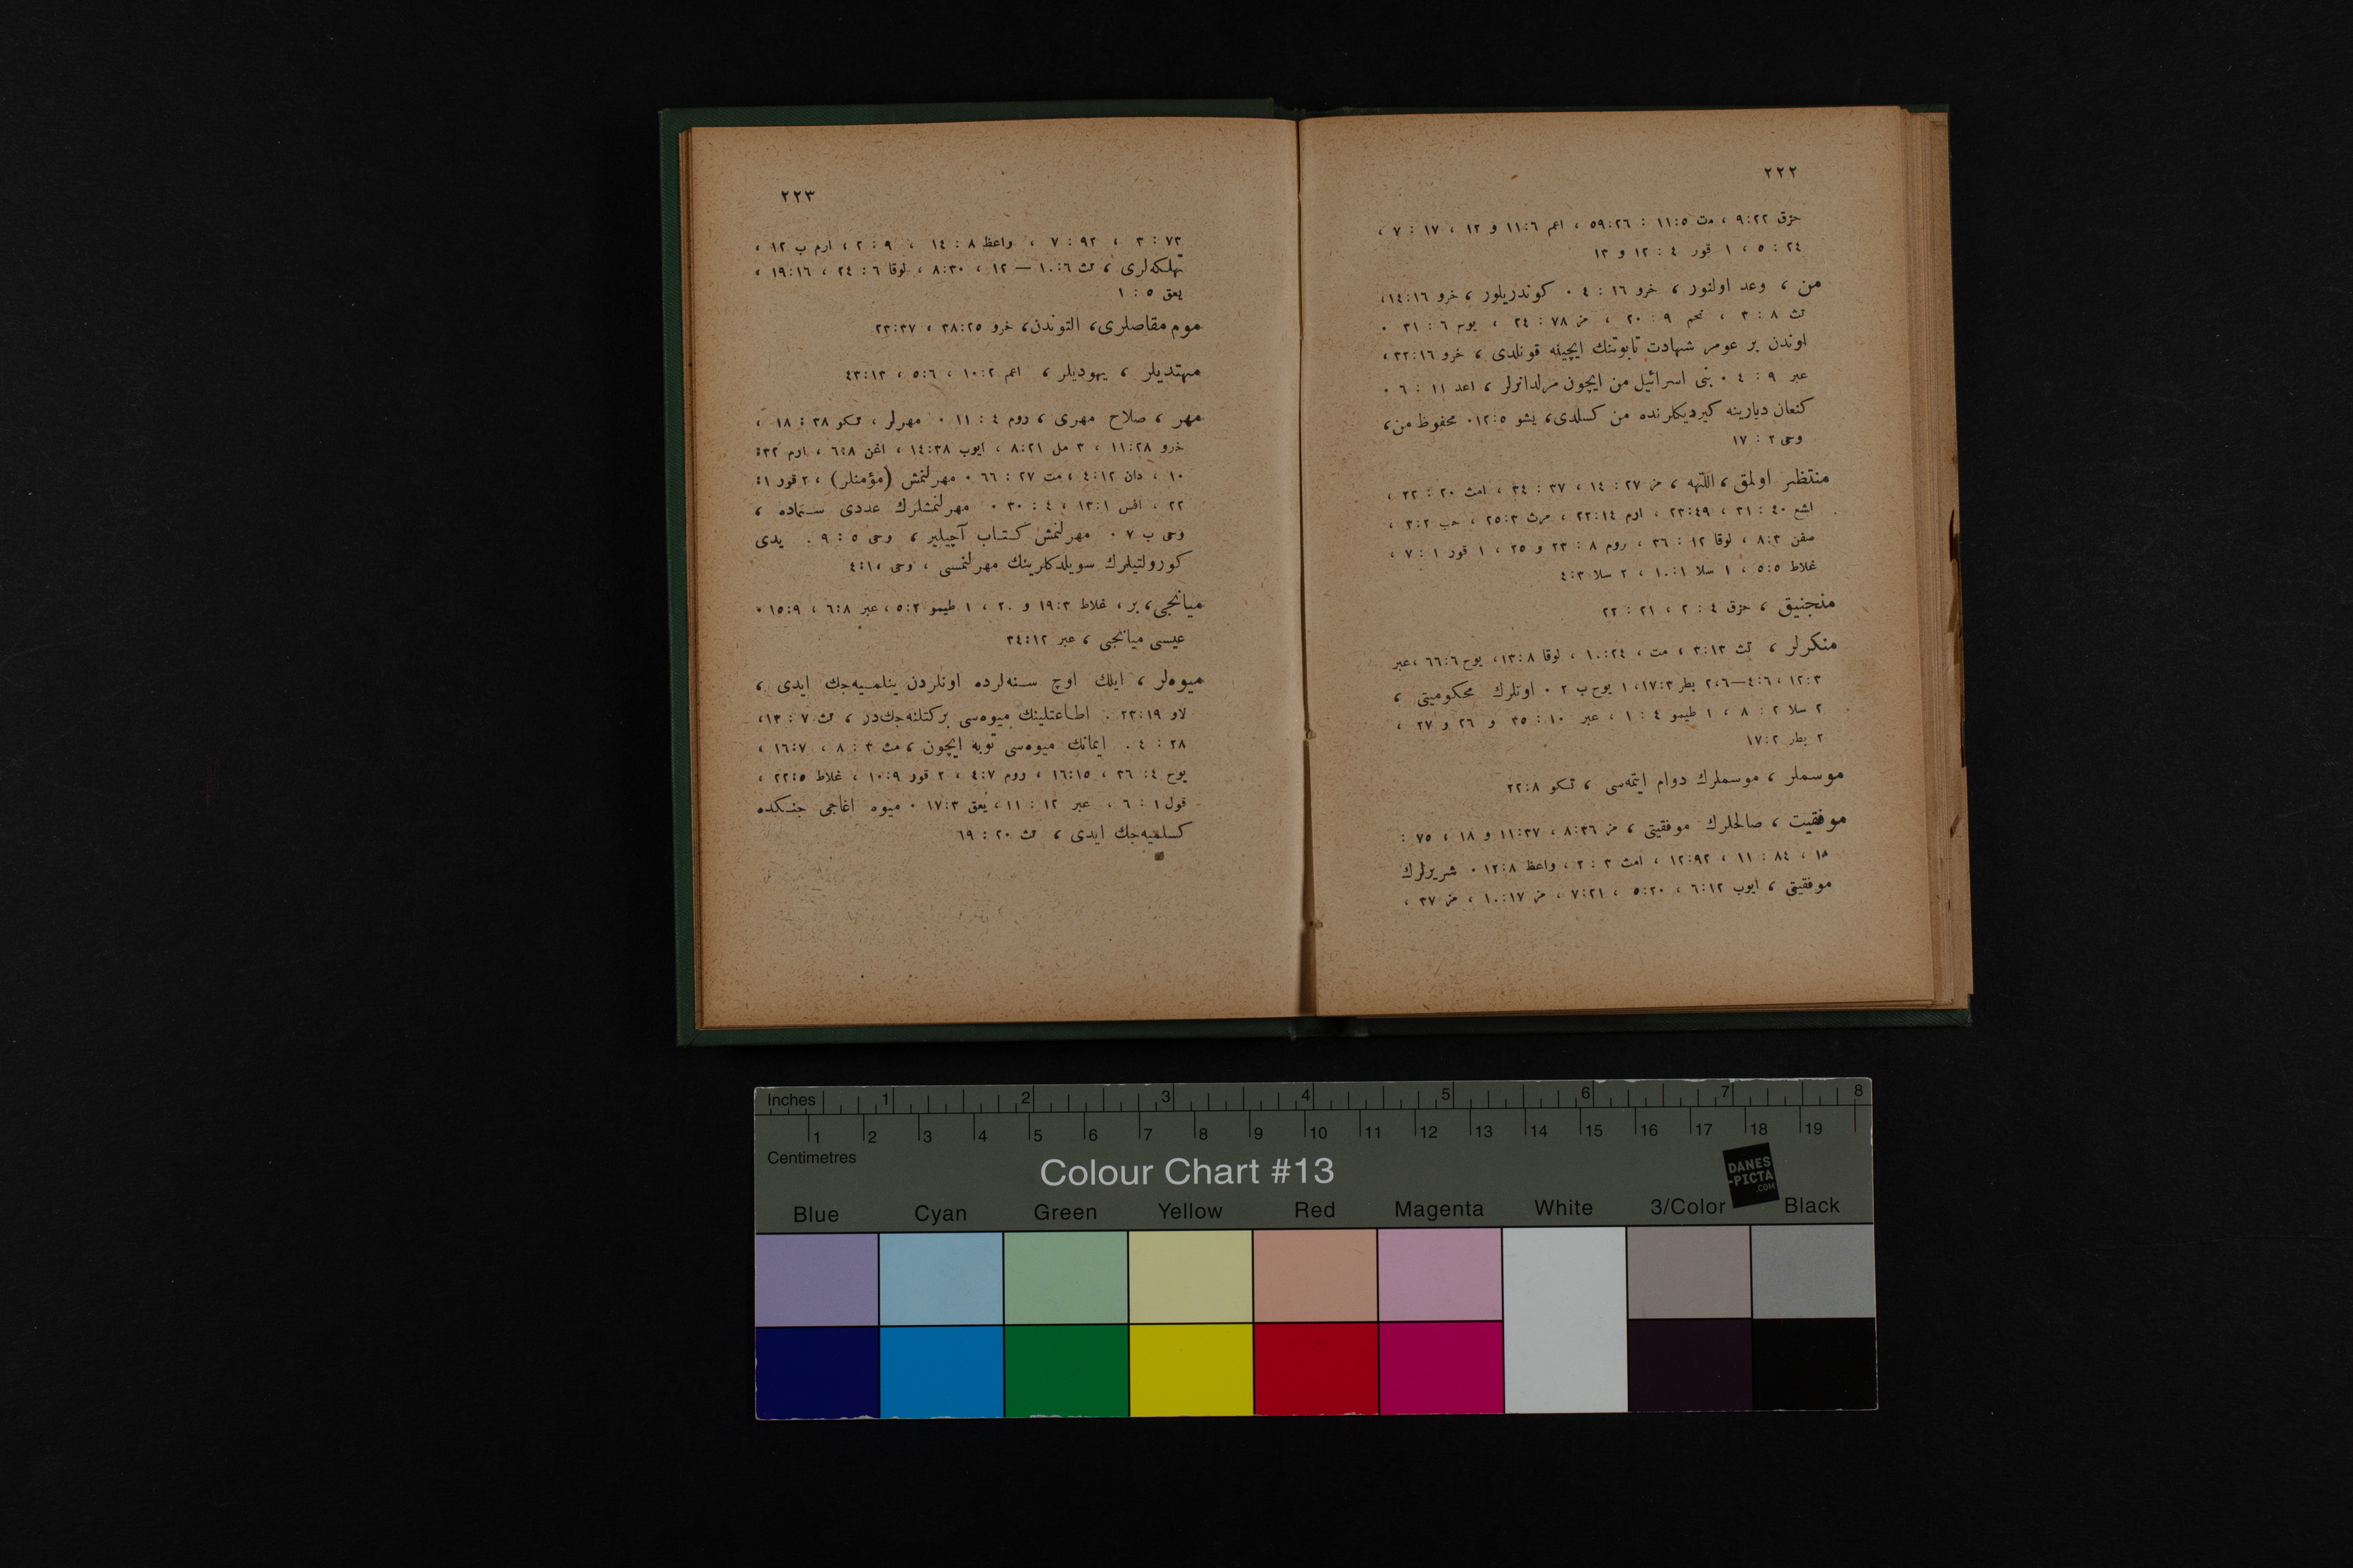 ٢٢٢
حزق ٩:٢٢ ، مت ١١:٥ : ٥٩:٢٦ ، اعم ١١:٦ و ١٢ ، ١٧ : ٧ ،
٢٤ : ٥ ، ١ قور ٤ : ١٢ و ١٣
من ، وعد اولنور ، خرو ١٦ : ٤ ٠ كوندريلور ، خرو ١٤:١٦،
تث ٨ : ٣ ، نحم ٩ : ٢٠ ، مز ٧٨ : ٢٤ ، يوح ٦ : ٣١ ٠
اوندن بر عومر شهادت تابوتنك ايچينه قونلدى ، خرو ٣٢:١٦،
عبر ٩ : ٤ ٠ بنى اسرائيل من ايچون مرلدانرلر ، اعد ١١ : ٦ ٠
كنعان ديارينه كيرديكلرنده من كسلدى، يشو ١٢:٥ ٠ محفوظ من،
وحى ٢ : ١٧
منتظر اولمق ، اللّٰهه ، مز ٢٧ : ١٤ ، ٣٧ : ٣٤ ، امث ٢٠ : ٢٢ ،
اشع ٤٠ : ٣١ ، ٢٣:٤٩ ، ارم ٢٢:١٤ ، مرث ٢٥:٣ ، حب ٣:٢ ،
صفن ٨:٣ ، لوقا ١٢ : ٣٦ ، روم ٨ : ٢٣ و ٢٥ ، ١ قور ١ : ٧ ،
غلاط ٥:٥ ، ١ سلا ١٠:١ ، ٢ سلا ٤:٣
منجنيق ، حزق ٤ : ٢ ، ٢١ : ٢٢
منكرلر ، تث ٣:١٣ ، مت ، ١٠:٢٤ ، لوقا ١٣:٨، يوح ٦٦:٦ ،عبر
١٢:٣ ، ٤:٦—٦، ٢ بطر ١٧:٣، ١ يوح ب ٢ ٠ اونلرك محكوميتى ،
٢ سلا ٢ : ٨ ، ١ طيمو ٤ : ١ ، عبر ١٠ : ٢٥ و ٢٦ و ٢٧ ،
٢ بطر ١٧:٢
موسملر ، موسملرك دوام ايتمه‌سى ، تكو ٢٢:٨
موفقيت ، صالحلرك موفقيتى ، مز ٨:٣٦ ، ١١:٣٧ و ١٨ ، ٧٥ :
١٨ ، ٨٤ : ١١ ، ١٢:٩٢ ، امث ٣ : ٢ ، واعظ ١٢:٨ ٠ شريرلرك
موفقيتى ، ايوب ٦:١٢ ، ٥:٢٠ ، ٧:٢١ ، مز ١٠:١٧ ، مز ٣٧ ،
٢٢٣
٧٣ : ٣ ، ٩٢ : ٧ ، واعظ ٨ : ١٤ ، ٩ : ٢ ، ارم ب ١٢ ،
تهلكه‌لرى ، تث ١٠:٦ — ١٢ ، ٨:٣٠ ، لوقا ٦ : ٢٤ ، ١٩:١٦ ،
يعق ٥ : ١
موم مقاصلرى، التوندن، خرو ٣٨:٢٥ ، ٢٣:٣٧
مهتديلر ، يهوديلر ، اعم ١٠:٢ ، ٥:٦ ، ٤٣:١٣
مهر ، صلاح مهرى ، روم ٤ : ١١ ٠ مهرلر ، تكو ٣٨ : ١٨ ،
خرو ١١:٢٨ ، ٣ مل ٨:٢١ ، ايوب ١٤:٣٨ ، اغن ٦:٨ ، ارم ٣٢:
١٠ ، دان ٤:١٢ ، مت ٢٧ : ٦٦ ٠ مهرلنمش (مؤمنلر) ، ٢ قور ١:
٢٢ ، افس ١٣:١ ، ٤ : ٣٠ ٠ مهرلنمشلرك عددى سماده ،
وحى ب ٧ ٠ مهرلنمش كتاب آچيلير ، وحى ٥ : ٩ ٠ يدى
كورولتيلرك سويلدكلرينك مهرلنمسى ، وحى ٤:١٠
ميانجى، بر ، غلاط ١٩:٣ و ٢٠ ، ١ طيمو ٥:٢ ، عبر ٦:٨ ، ١٥:٩ ٠
عيسى ميانجى ، عبر ٢٤:١٢
ميوه‌لر ، ايلك اوچ سنه‌لرده اونلردن ينلميه‌جك ايدى ،
لاو ٢٣:١٩ ٠ اطاعتلينك ميوه‌سى بركتلنه‌جك‌در ، تث ٧ : ١٣،
٢٨ : ٤ ٠ ايمانك ميوه‌سى توبه ايچون ، مت ٣ : ٨ ، ١٦:٧ ،
يوح ٤: ٣٦ ، ١٦:١٥ ، روم ٤:٧ ، ٢ قور ١٠:٩ ، غلاط ٢٢:٥ ،
قول ١ : ٦ ، عبر ١٢ : ١١ ، يعق ١٧:٣ ٠ ميوه اغاجى جنكده
كسلميه‌جك ايدى ، تث ٢٠ : ١٩
Inches 1 2 3 4 5 6 7 8
1 2 3 4 5 6 7 8 9 10 11 12 13 14 15 16 17 18 19
Centimetres
Colour Chart #13
DANES
-PICTA
.COM
Blue Cyan Green Yellow Red Magenta White 3/Color Black